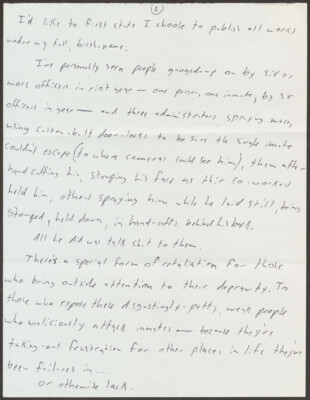 1
I'd like to first state I choose to publish all works
under my full, birthname.
I've personally seen people ganged-up on by six or
more officers in riot gear — one person, one inmate, by six
officers in gear — and three administrators spraying mace,
using custom-built door-locks to be sure the single inmate
couldn't escape (to where cameras could see him), them after
handcuffing him, stomping his face as their co-workers
held him, others spraying him while he laid still, being
stomped, held down, in hand-cuffs behind his back.
All he did was talk shit to them.
There's a special form of retaliation for those
who bring outside attention to their depravity. To
those who expose these disgustingly-petty, weak people
who maliciously attack inmates — because they're
taking-out frustration for other places in life they've
been failures in....
Or otherwise lack.